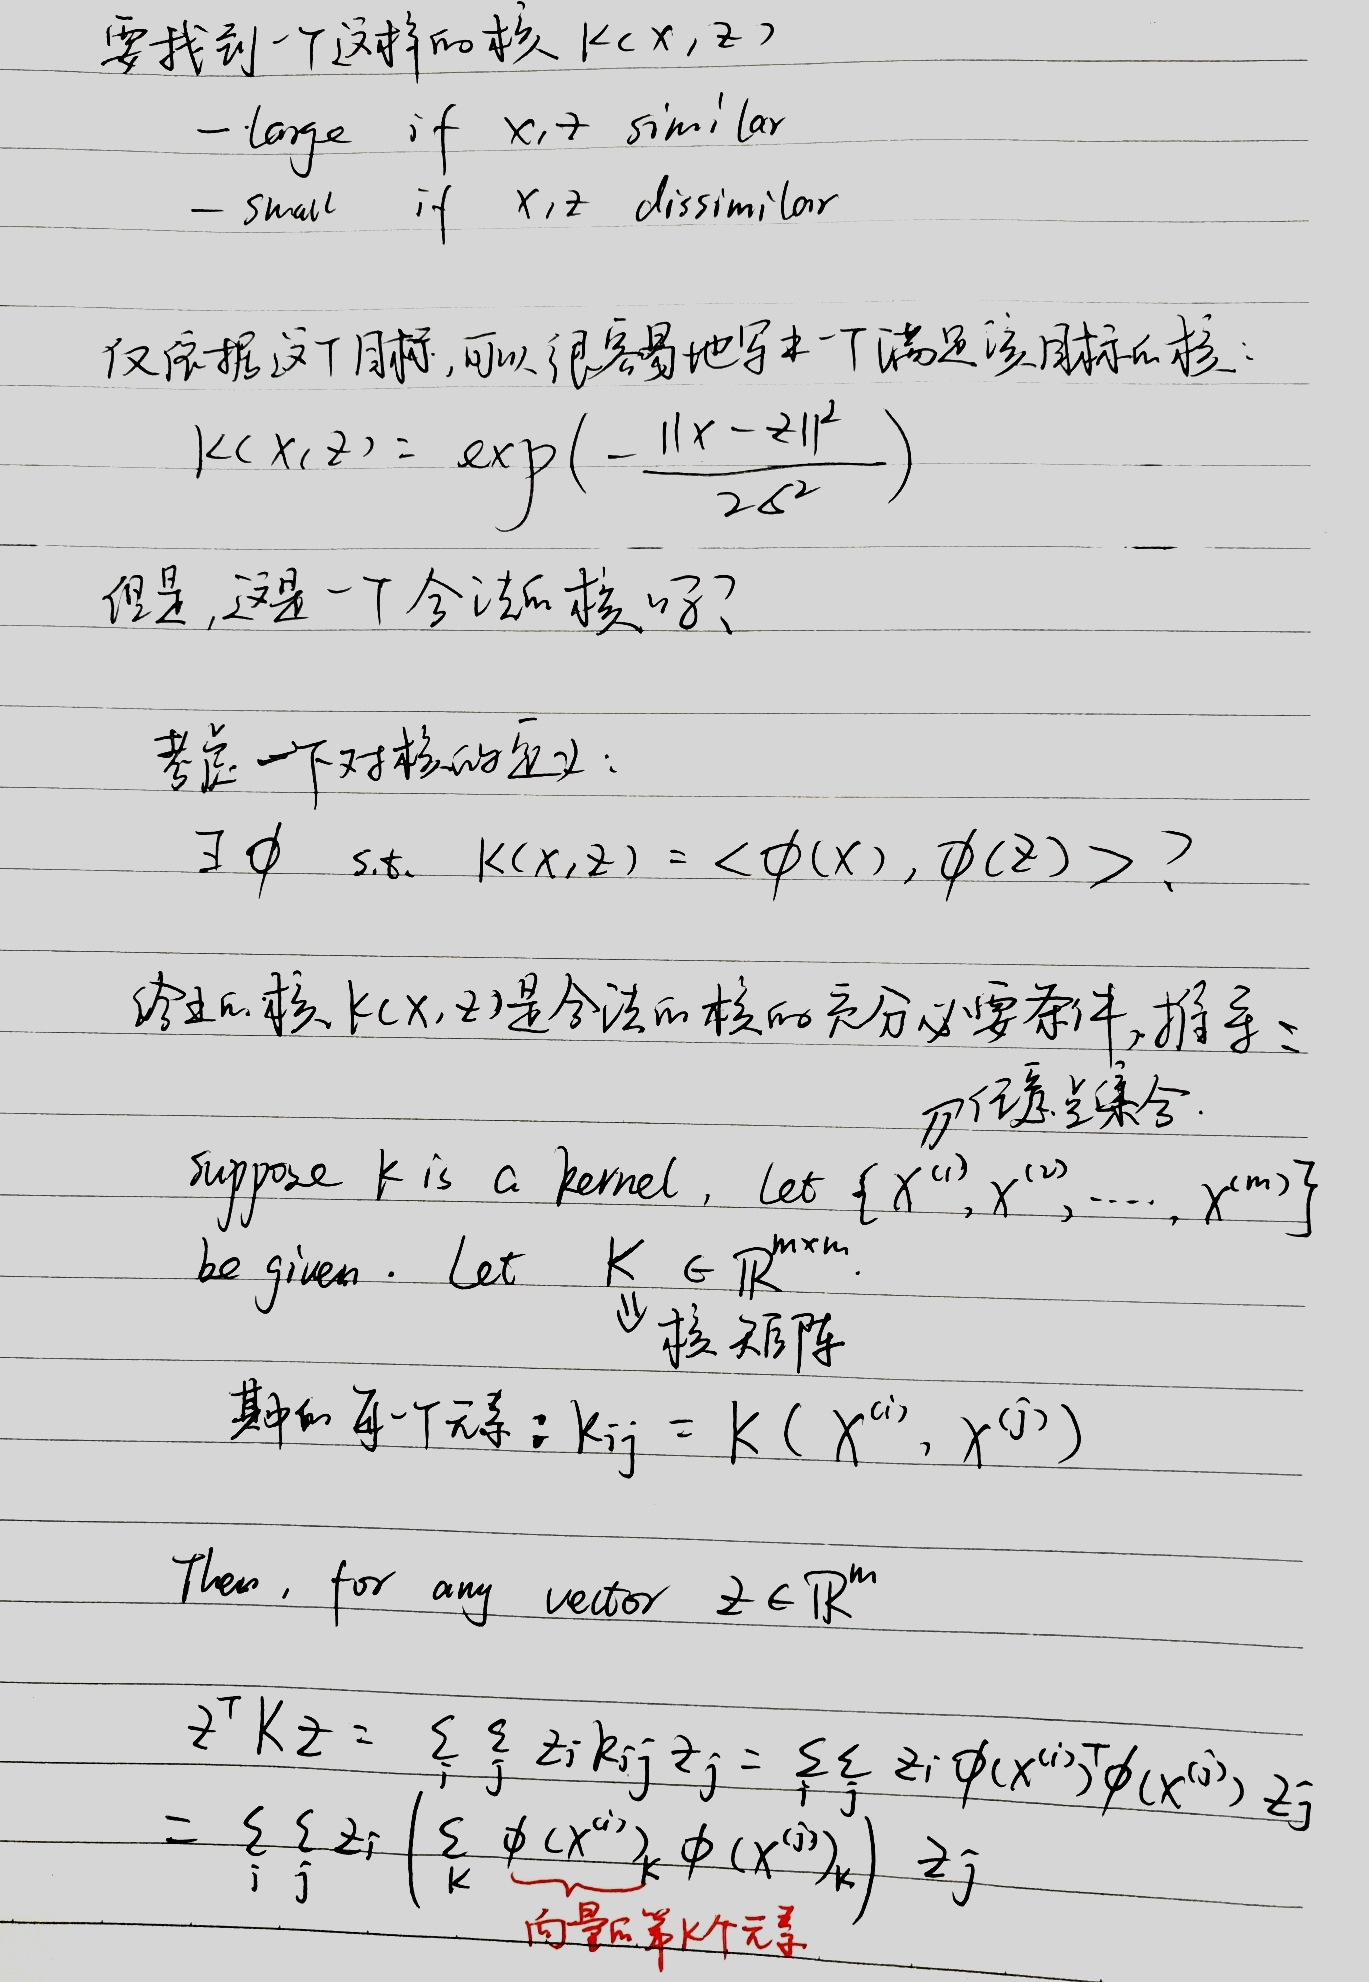 要找到一个这样的核 K(x,z)
- large if x,z similar
- small if x,z dissimilar
仅依据这个目标,可以很容易地写出一个满足该目标的核:
K(x,z) = exp(-||x-z||²/2σ²)
但是,这是一个合法的核吗?
考虑一下对核的定义:
∃ϕ s.t. K(x,z) = <ϕ(x), ϕ(z)> ?
给出的核 K(x,z)是合法的核的充分必要条件,推导:
任意点集合.
suppose K is a kernel, let {x⁽¹⁾, x⁽²⁾, ....., x⁽ᵐ⁾}
be given. Let K ∈ ℝ^{m×m}.
⇓ 核矩阵
其中的每一个元素: K_{ij} = K(x⁽ⁱ⁾, x⁽ʲ⁾)
Then, for any vector z ∈ ℝᵐ
zᵀKz = Σ_i Σ_j z_i k_{ij} z_j = Σ_i Σ_j z_i ϕ(x⁽ⁱ⁾)ᵀϕ(x⁽ʲ⁾) z_j
= Σ_i Σ_j z_i (Σ_k ϕ(x⁽ⁱ⁾)_k ϕ(x⁽ʲ⁾)_k) z_j
向量的第K个元素